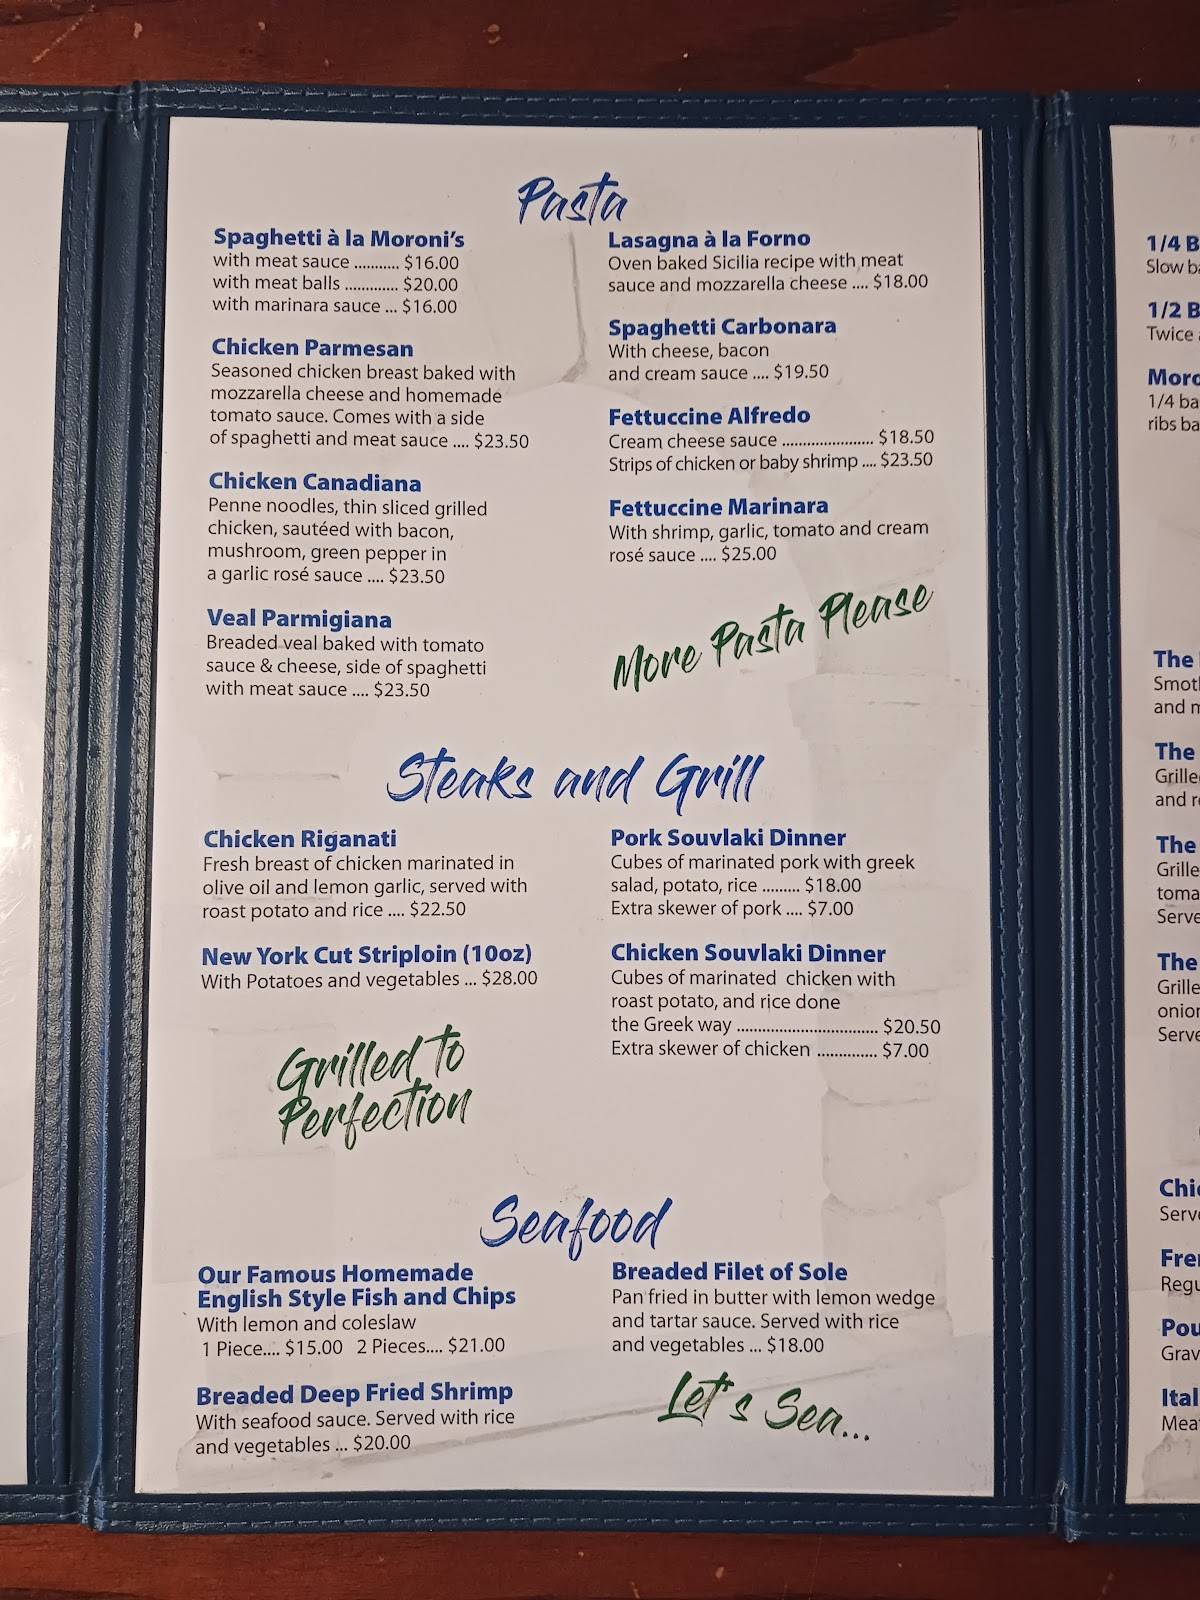 Pasta
Spaghetti à la Moroni's
with meat sauce ........... $16.00
with meat balls ............. $20.00
with marinara sauce ... $16.00
Chicken Parmesan
Seasoned chicken breast baked with
mozzarella cheese and homemade
tomato sauce. Comes with a side
of spaghetti and meat sauce .... $23.50
Chicken Canadiana
Penne noodles, thin sliced grilled
chicken, sautéed with bacon,
mushroom, green pepper in
a garlic rosé sauce .... $23.50
Veal Parmigiana
Breaded veal baked with tomato
sauce & cheese, side of spaghetti
with meat sauce .... $23.50
Lasagna à la Forno
Oven baked Sicilia recipe with meat
sauce and mozzarella cheese .... $18.00
Spaghetti Carbonara
With cheese, bacon
and cream sauce .... $19.50
Fettuccine Alfredo
Cream cheese sauce ...................... $18.50
Strips of chicken or baby shrimp .... $23.50
Fettuccine Marinara
With shrimp, garlic, tomato and cream
rosé sauce .... $25.00
More Pasta Please
Steaks and Grill
Chicken Riganati
Fresh breast of chicken marinated in
olive oil and lemon garlic, served with
roast potato and rice .... $22.50
New York Cut Striploin (10oz)
With Potatoes and vegetables ... $28.00
Grilled to
Perfection
Pork Souvlaki Dinner
Cubes of marinated pork with greek
salad, potato, rice ......... $18.00
Extra skewer of pork .... $7.00
Chicken Souvlaki Dinner
Cubes of marinated chicken with
roast potato, and rice done
the Greek way .................................. $20.50
Extra skewer of chicken .............. $7.00
Seafood
Our Famous Homemade
English Style Fish and Chips
With lemon and coleslaw
1 Piece.... $15.00 2 Pieces.... $21.00
Breaded Deep Fried Shrimp
With seafood sauce. Served with rice
and vegetables ... $20.00
Breaded Filet of Sole
Pan fried in butter with lemon wedge
and tartar sauce. Served with rice
and vegetables ... $18.00
Let's Sea...
1/4 B
Slow ba
1/2 B
Twice
Moro
1/4 ba
ribs ba
The
Smot
and m
The
Grille
and r
The
Grille
toma
Serve
The
Grille
onior
Serve
Chic
Serv
Fre
Regu
Pou
Grav
Ital
Mea